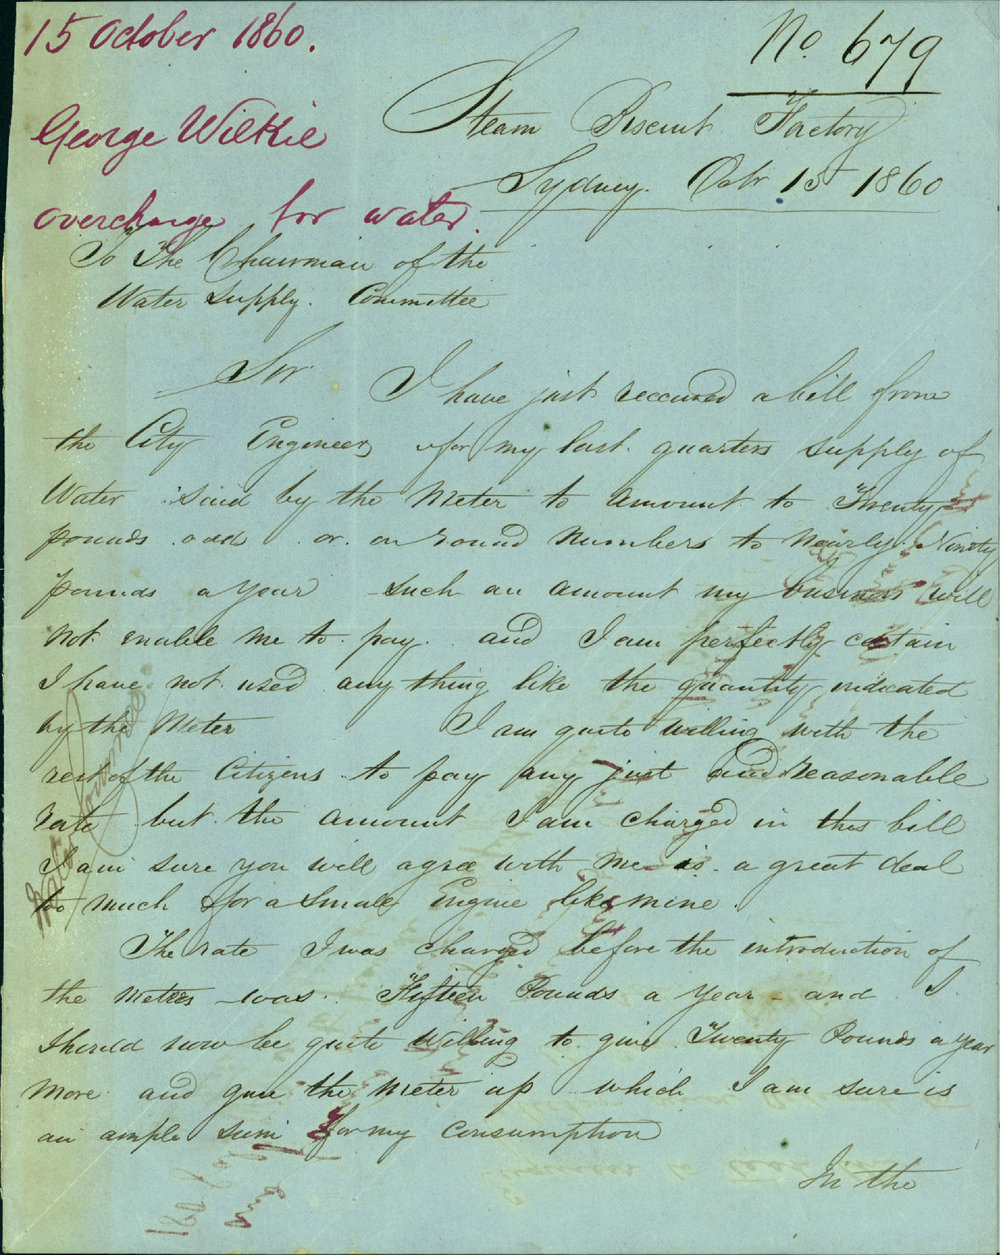 15 October 1860.
No. 679
George Wilkie
overcharge for water.
Steam Biscuit Factory
Sydney. Octr. 15 1860
To The Chairman of the
Water Supply. Committee
Sir
I have just received a bill from
the City Engineer for my last quarters supply of
Water said by the Meter to amount to Twenty
pounds odd or in round numbers to Nearly Ninety
pounds a year such an amount my business will
not enable me to pay. and I am perfectly certain
I have not used any thing like the quantity indicated
by the Meter I am quite willing with the
rest of the Citizens to pay any just and Reasonable
rate but the amount I am charged in this bill
I am sure you will agree with me is a great deal
to much for a small Engine like mine.
The rate I was charged before the introduction of
the meters was. Fifteen Pounds a year - and I.
should now be quite willing to give Twenty Pounds a year
more and give the Meter up which I am sure is
an ample sum for my consumption
In the
Water Committee